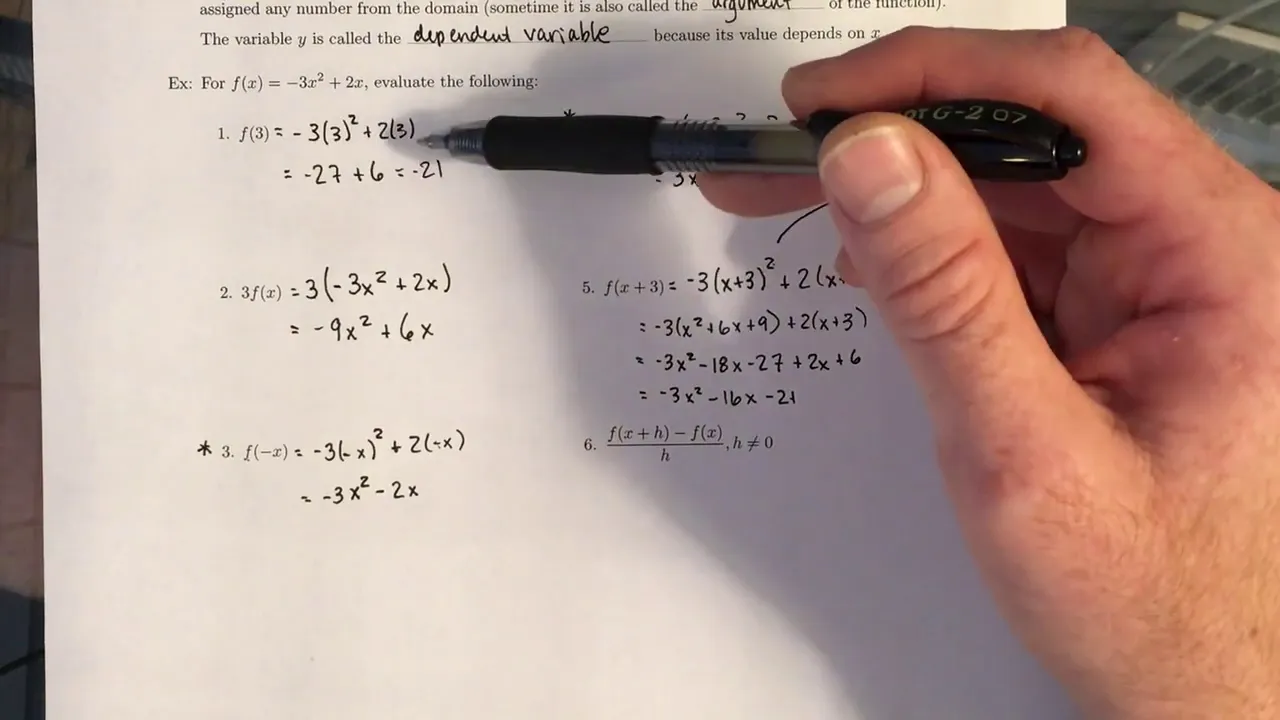 assigned any number from the domain (sometime it is also called the argument of the function).
The variable y is called the dependent variable because its value depends on x
Ex: For f(x) = −3x² + 2x, evaluate the following:
1. f(3) = -3(3)² + 2(3)
= -27 + 6 = -21
*
= 3x
2. 3f(x) = 3(-3x² + 2x)
= -9x² + 6x
* 3. f(−x) = -3(-x)² + 2(-x)
= -3x² - 2x
5. f(x + 3) = -3(x+3)² + 2(x
= -3(x²+6x+9)+2(x+3)
= -3x² - 18x - 27 + 2x + 6
= -3x² - 16x - 21
6. f(x + h) − f(x) / h, h ≠ 0
G-2 07